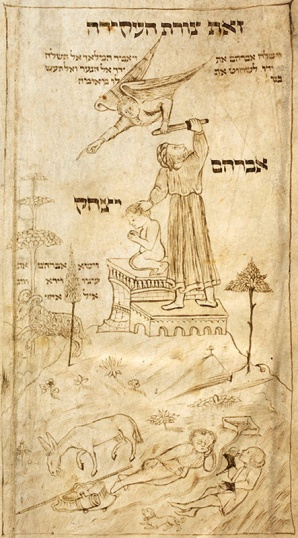 זאת צורת העקידה
וישלח אברהם את
ידו לשחוט את
בנו
ויאמר המלאך אל תשלח
ידך אל הנער ואל תעש
לו מאומה
אברהם
יצחק
וישא אברהם את
עיניו וירא והנה
איל אחר